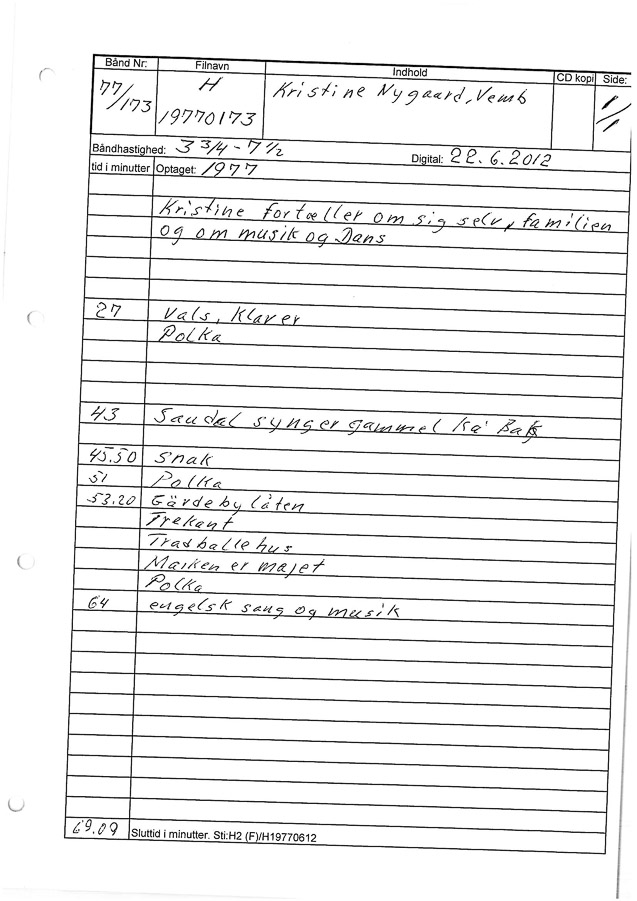 Bånd Nr: Filnavn Indhold CD kopi Side:
77/173 H Kristine Nygaard, Vemb 1/1
19770173
Båndhastighed: 3 3/4 - 7 1/2 Digital: 22.6.2012
tid i minutter Optaget: 1977
Kristine fortæller om sig selv, familien
og om musik og Dans
27 Vals, Klaver
Polka
43 synger gammel
45.50 Snak
51 Polka
53.20 Gärdeby låten
Trekant
Tradballehus
Marken er majet
Polka
64 engelsk sang og musik
69.09 Sluttid i minutter. Sti:H2 (F)/H19770612